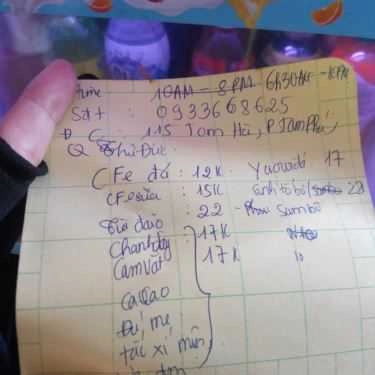 time : 10AM - 8PM 6h30AM - 10PM
Sđt : 0933668625
Đ C : 115 Tam Hà, P. Tam Phú,
Q Thủ Đức.
CFe đá : 12K Yaourt đá 17
CF sữa : 15K Sinh tố bơ 22
: 22 Sambô
Chanh dây : 17K
Cam vắt 17K
Ca Cao
me
tắc xí muội